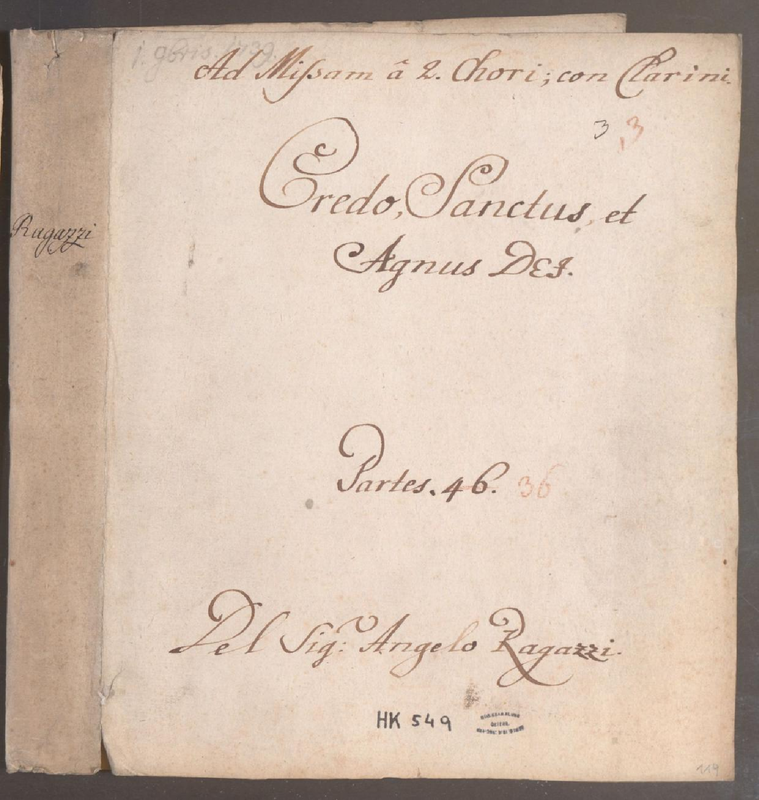 1. 9bris. 1739.
Ad Missam â 2. Chori; con Clarini.
3 3
Credo, Sanctus, et
Agnus DEI.
Ragazzi
Partes. 46. 36
Del Sigr: Angelo Ragazzi.
HK 549
119